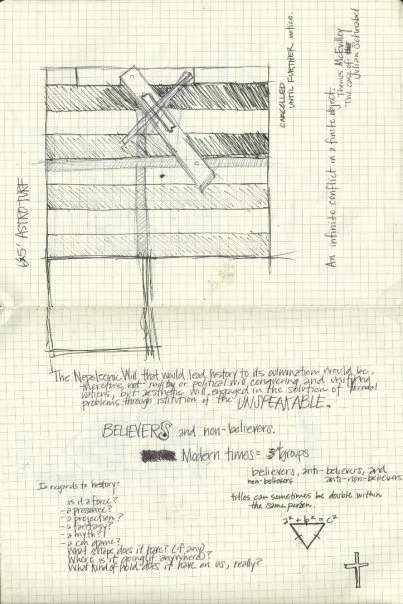 CANCELLED
UNTIL FURTHER notice.
An infinite conflict in a finite object.
Thomas McEvilley
The case of
Julian Schnabel
6x5' ASTRO-TURF
The Nepoleonic Will that would lead history to its culmination would be,
therefore, not military or political will, conquering and unifying
nations, but aesthetic will, engaged in the solution of formal
problems through istitution of the UNSPEAKABLE.
BELIEVERS and non-believers.
Modern times = groups
believers, anti-believers, and
non-believers anti-non-believers
titles can sometimes be double within
the same person.
a² + b² = c²
In regards to history:
is it a force?
- a presance?
- a projection?
- a fantasy?
- a myth?
- a con game?
What shape does it have? (if any)
Where is it going, if anywhere?
What kind of hold does it have on us, really?